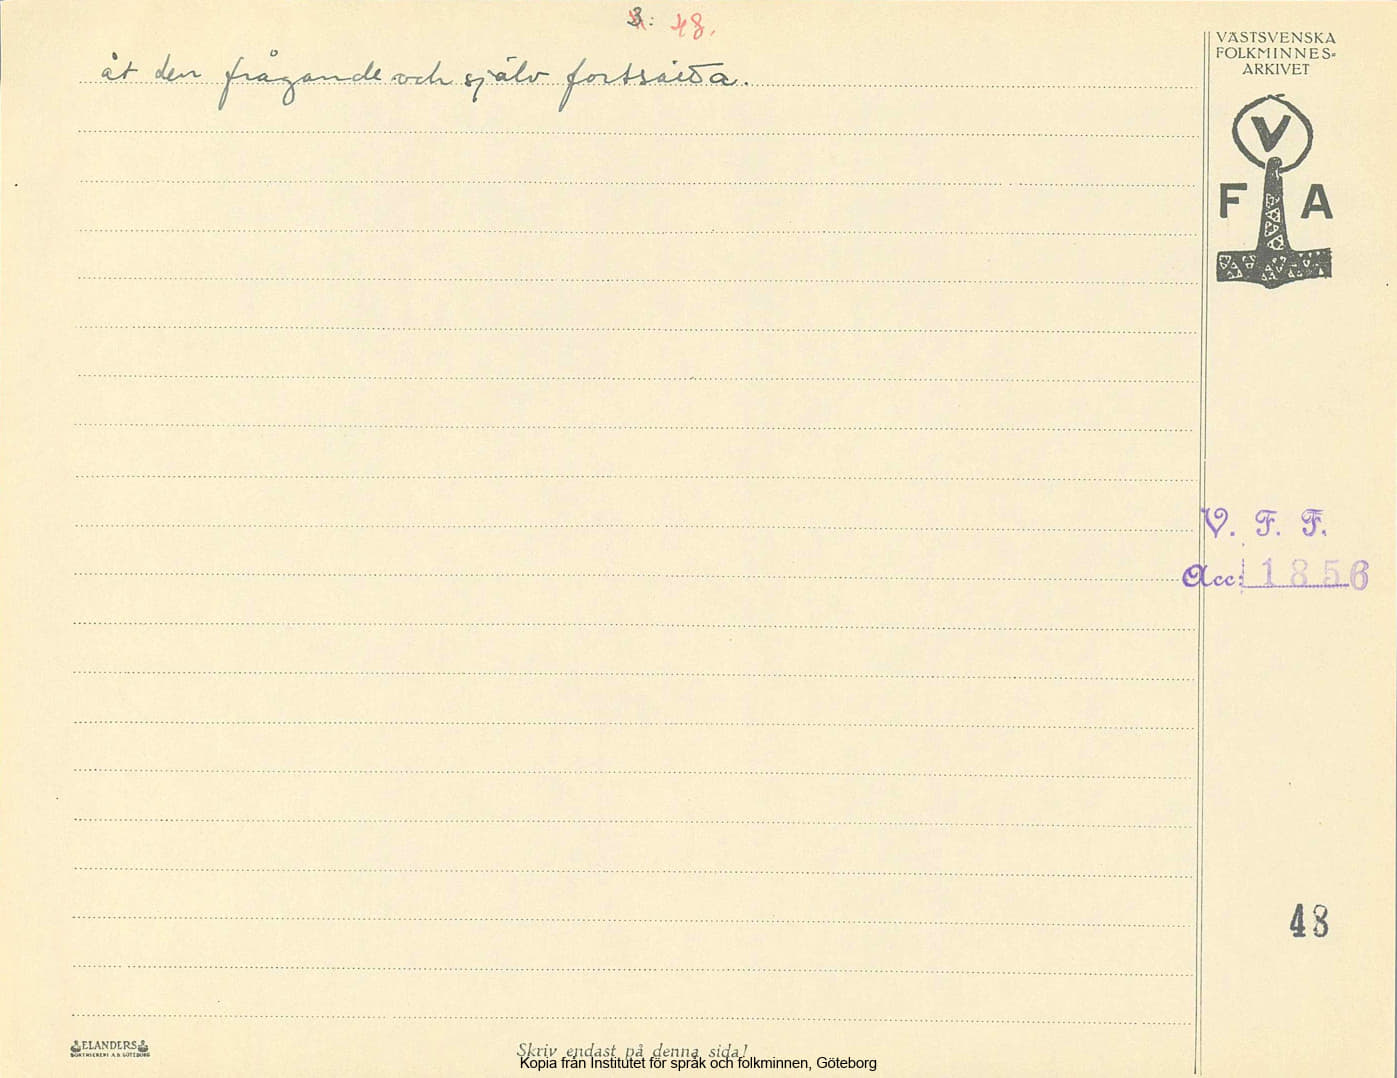 3: 48.
VÄSTSVENSKA
FOLKMINNES=
ARKIVET
åt den frågande och själv fortsätta.
V
F A
V. F. F.
Acc: 1856
48
ELANDERS
BOKTRYCKERI A.B. GÖTEBORG
Skriv endast på denna sida!
Kopia från Institutet för språk och folkminnen, Göteborg